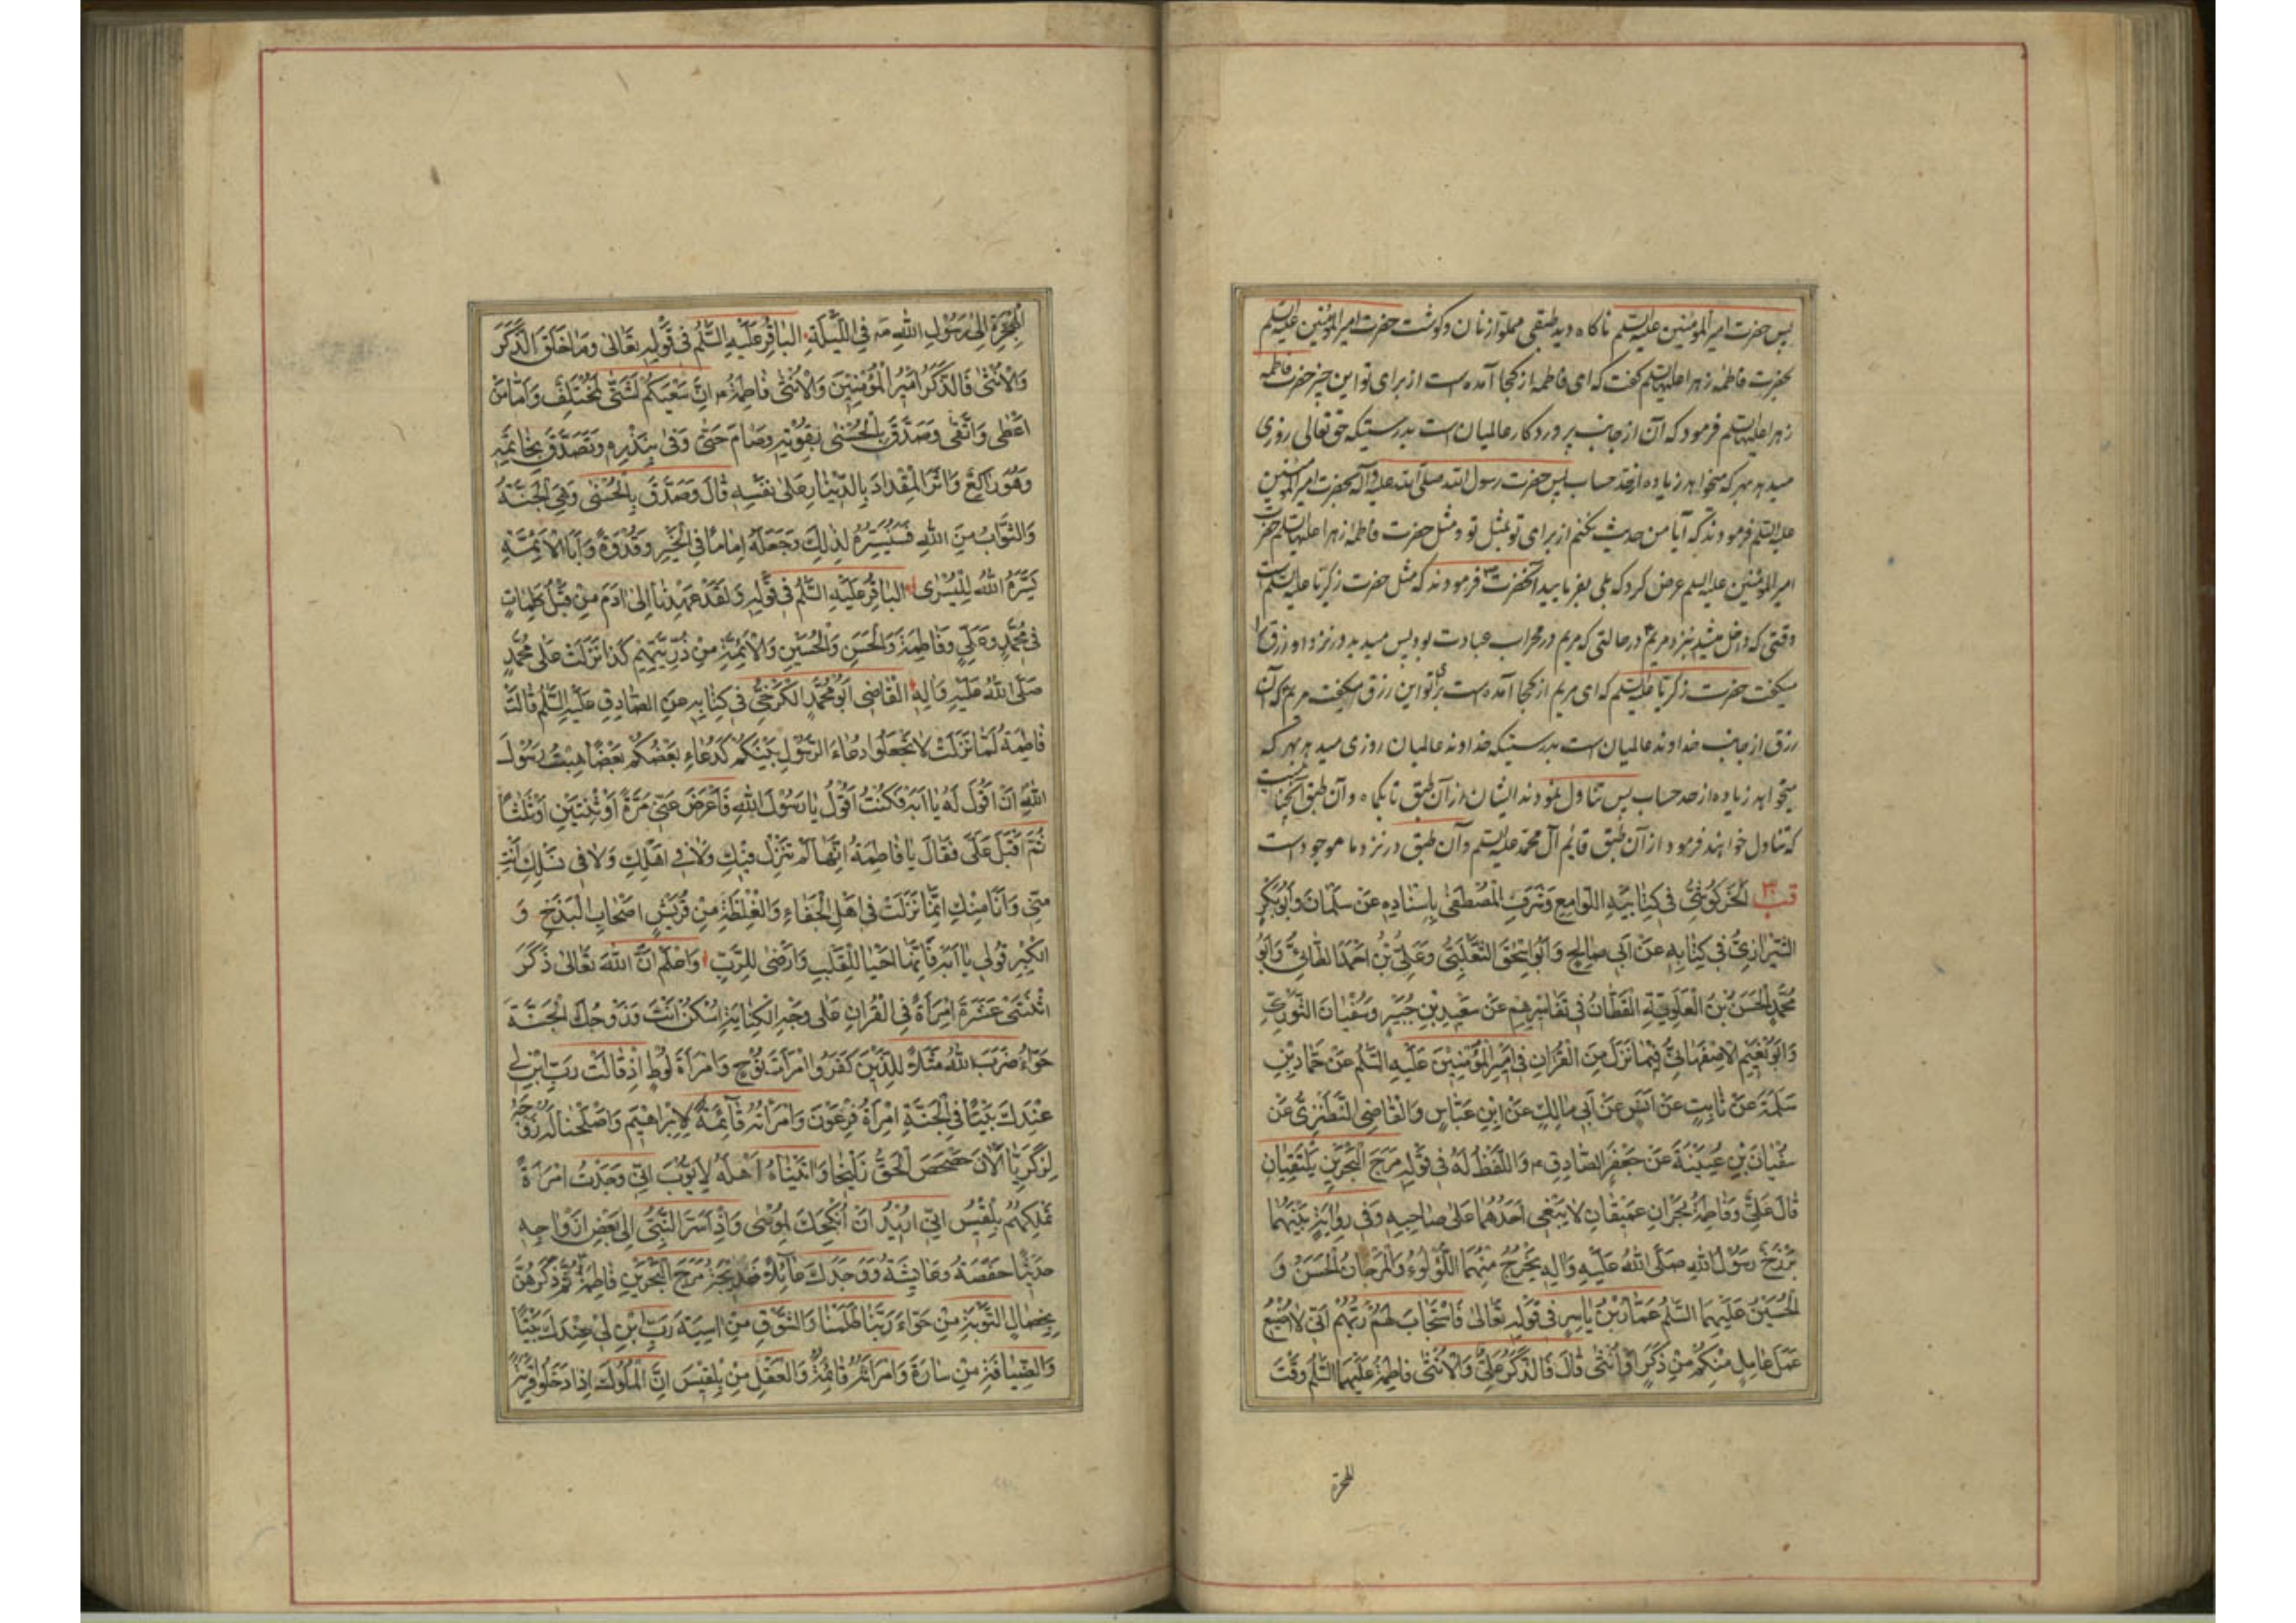 پس حضرت امیر المؤمنین علیه السلم ناکاه دید طبقی مملو از نان و کوشت حضرت امیر المؤمنین علیه السلم
بحضرت فاطمه زهرا علیها السلم کفت که ای فاطمه از کجا آمده است از برای تو این چیز حضرت فاطمه
زهرا علیها السلم فرمود که آن از جانب پروردکار عالمیان است بدرستیکه حق تعالی روزی
میدهد بهر که میخواهد زیاده از حد حساب پس حضرت رسول الله صلی الله علیه و آله بحضرت امیر المؤمنین
علیه السلم فرمودند که آیا من حدیث بکنم از برای تو بمثل تو و مثل حضرت فاطمه زهرا علیها السلم حضرت
امیر المؤمنین علیه السلم عرض کرد که بلی بفرمایید آنحضرت فرمودند که مثل حضرت زکریا علیه السلم است
وقتی که داخل میشد نزد مریم در حالتی که مریم در محراب عبادت بود پس میدید در نزد او رزق را
میکفت حضرت زکریا علیه السلم که ای مریم از کجا آمده است برای تو این رزق میکفت مریم که آن
رزق از جانب خداوند عالمیان است بدرستیکه خداوند عالمیان روزی میدهد بهر که
میخواهد زیاده از حد حساب پس تناول نمودند ایشان از آن طبق تا یکماه و آن طبق آنچنان است
که تناول خواهند فرمود از آن طبق قایم آل محمد علیه السلم و آن طبق در نزد ما موجود است
قب ٣ الخَرْكُوشِيُّ فِي كِتَابَيْهِ اللَّوَامِعِ وَشَرَفِ الْمُصْطَفَى بِإِسْنَادِهِ عَنْ سَلْمَانَ وَأَبُو بَكْرٍ
الشِّيرَازِيُّ فِي كِتَابِهِ عَنْ أَبِي صَالِحٍ وَأَبُو إِسْحَقَ الثَّعْلَبِيُّ وَعَلِيُّ بْنُ أَحْمَدَ الطَّائِيُّ وَأَبُو
مُحَمَّدٍ الْحَسَنُ بْنُ الْعَلَوِيَّةِ الْقَطَّانُ فِي تَفَاسِيرِهِمْ عَنْ سَعِيدِ بْنِ جُبَيْرٍ وَسُفْيَانَ الثَّوْرِيِّ
وَأَبُو نُعَيْمٍ الْأَصْفَهَانِيُّ فِيمَا نَزَلَ مِنَ الْقُرْآنِ فِي أَمِيرِ الْمُؤْمِنِينَ عَلَيْهِ السَّلَمُ عَنْ حَمَّادِ بْنِ
سَلَمَةَ عَنْ ثَابِتٍ عَنْ أَنَسٍ عَنْ أَبِي مَالِكٍ عَنِ ابْنِ عَبَّاسٍ وَالْقَاضِي النَّطَنْزِيُّ عَنْ
سُفْيَانَ بْنِ عُيَيْنَةَ عَنْ جَعْفَرٍ الصَّادِقِ ع وَاللَّفْظُ لَهُ فِي قَوْلِهِ مَرَجَ الْبَحْرَيْنِ يَلْتَقِيَانِ
قَالَ عَلِيٌّ وَفَاطِمَةُ بَحْرَانِ عَمِيقَانِ لَا يَبْغِي أَحَدُهُمَا عَلَى صَاحِبِهِ وَفِي رِوَايَةٍ بَيْنَهُمَا
بَرْزَخٌ رَسُولُ اللهِ صَلَّى اللهُ عَلَيْهِ وَآلِهِ يَخْرُجُ مِنْهُمَا اللُّؤْلُؤُ وَالْمَرْجَانُ الْحَسَنُ وَ
الْحُسَيْنُ عَلَيْهِمَا السَّلَمُ عَمَّارُ بْنُ يَاسِرٍ فِي قَوْلِهِ تَعَالَى فَاسْتَجَابَ لَهُمْ رَبُّهُمْ أَنِّي لَا أُضِيعُ
عَمَلَ عَامِلٍ مِنْكُمْ مِنْ ذَكَرٍ أَوْ أُنْثَى قَالَ فَالذَّكَرُ عَلِيٌّ وَالْأُنْثَى فَاطِمَةُ عَلَيْهِمَا السَّلَمُ وَقْتَ
الهجرة
الْهِجْرَةِ إِلَى رَسُولِ اللهِ صه فِي اللَّيْلَةِ الْبَاقِرُ عَلَيْهِ السَّلَمُ فِي قَوْلِهِ تَعَالَى وَمَا خَلَقَ الذَّكَرَ
وَالْأُنْثَى فَالذَّكَرُ أَمِيرُ الْمُؤْمِنِينَ وَالْأُنْثَى فَاطِمَةُ ع إِنَّ سَعْيَكُمْ لَشَتَّى لَمُخْتَلِفٌ وَأَمَّا مَنْ
أَعْطَى وَاتَّقَى وَصَدَّقَ بِالْحُسْنَى بِقُوتِهِ وَصَامَ حَتَّى وَفَى بِنَذْرِهِ وَتَصَدَّقَ بِخَاتَمِهِ
وَهُوَ رَاكِعٌ وَآثَرَ الْمِقْدَادَ بِالدِّينَارِ عَلَى نَفْسِهِ قَالَ وَصَدَّقَ بِالْحُسْنَى وَهِيَ الْجَنَّةُ
وَالثَّوَابُ مِنَ اللهِ فَسَنُيَسِّرُهُ لِذَلِكَ وَجَعَلَهُ إِمَامًا فِي الْخَيْرِ وَقُدْوَةً وَأَبًا لِلْأَئِمَّةِ
يَسَّرَهُ اللهُ لِلْيُسْرَى الْبَاقِرُ عَلَيْهِ السَّلَمُ فِي قَوْلِهِ وَلَقَدْ عَهِدْنَا إِلَى آدَمَ مِنْ قَبْلُ كَلِمَاتٍ
فِي مُحَمَّدٍ وَعَلِيٍّ وَفَاطِمَةَ وَالْحَسَنِ وَالْحُسَيْنِ وَالْأَئِمَّةِ مِنْ ذُرِّيَّتِهِمْ كَذَا نَزَلَتْ عَلَى مُحَمَّدٍ
صَلَّى اللهُ عَلَيْهِ وَآلِهِ الْقَاضِي أَبُو مُحَمَّدٍ الْكَرْخِيُّ فِي كِتَابِهِ عَنِ الصَّادِقِ عَلَيْهِ السَّلَمُ قَالَتْ
فَاطِمَةُ لَمَّا نَزَلَتْ لَا تَجْعَلُوا دُعَاءَ الرَّسُولِ بَيْنَكُمْ كَدُعَاءِ بَعْضِكُمْ بَعْضًا هِبْتُ رَسُولَ
اللهِ أَنْ أَقُولَ لَهُ يَا أَبَهْ فَكُنْتُ أَقُولُ يَا رَسُولَ اللهِ فَأَعْرَضَ عَنِّي مَرَّةً أَوْ ثِنْتَيْنِ أَوْ ثَلَثًا
ثُمَّ أَقْبَلَ عَلَيَّ فَقَالَ يَا فَاطِمَةُ إِنَّهَا لَمْ تَنْزِلْ فِيكِ وَلَا فِي أَهْلِكِ وَلَا فِي نَسْلِكِ أَنْتِ
مِنِّي وَأَنَا مِنْكِ إِنَّمَا نَزَلَتْ فِي أَهْلِ الْجَفَاءِ وَالْغِلْظَةِ مِنْ قُرَيْشٍ أَصْحَابِ الْبَذَخِ وَ
الْكِبْرِ قُولِي يَا أَبَهْ فَإِنَّهَا أَحْيَا لِلْقَلْبِ وَأَرْضَى لِلرَّبِّ وَاعْلَمْ أَنَّ اللهَ تَعَالَى ذَكَرَ
اثْنَتَيْ عَشْرَةَ امْرَأَةً فِي الْقُرْآنِ عَلَى وَجْهِ الْكِنَايَةِ اسْكُنْ أَنْتَ وَزَوْجُكَ الْجَنَّةَ
حَوَّاءُ ضَرَبَ اللهُ مَثَلًا لِلَّذِينَ كَفَرُوا امْرَأَتَ نُوحٍ وَامْرَأَةَ لُوطٍ إِذْ قَالَتْ رَبِّ ابْنِ لِي
عِنْدَكَ بَيْتًا فِي الْجَنَّةِ امْرَأَةُ فِرْعَوْنَ وَامْرَأَتُهُ قَائِمَةٌ لِإِبْرَاهِيمَ وَأَصْلَحْنَا لَهُ زَوْجَهُ
لِزَكَرِيَّا الْآنَ حَصْحَصَ الْحَقُّ زَلِيخَا وَآتَيْنَاهُ أَهْلَهُ لِأَيُّوبَ إِنِّي وَجَدْتُ امْرَأَةً
تَمْلِكُهُمْ بِلْقِيسُ إِنِّي أُرِيدُ أَنْ أُنْكِحَكَ لِمُوسَى وَإِذْ أَسَرَّ النَّبِيُّ إِلَى بَعْضِ أَزْوَاجِهِ
حَدِيثًا حَفْصَةُ وَعَائِشَةُ وَوَجَدَكَ عَائِلًا خَدِيجَةُ مَرَجَ الْبَحْرَيْنِ فَاطِمَةُ ثُمَّ ذَكَرَهُنَّ
بِخِصَالٍ التَّوْبَةِ مِنْ حَوَّاءَ رَبَّنَا ظَلَمْنَا وَالشَّوْقِ مِنْ آسِيَةَ رَبِّ ابْنِ لِي عِنْدَكَ بَيْتًا
وَالضِّيَافَةِ مِنْ سَارَةَ وَامْرَأَتُهُ قَائِمَةٌ وَالْعَقْلِ مِنْ بِلْقِيسَ إِنَّ الْمُلُوكَ إِذَا دَخَلُوا قَرْيَةً